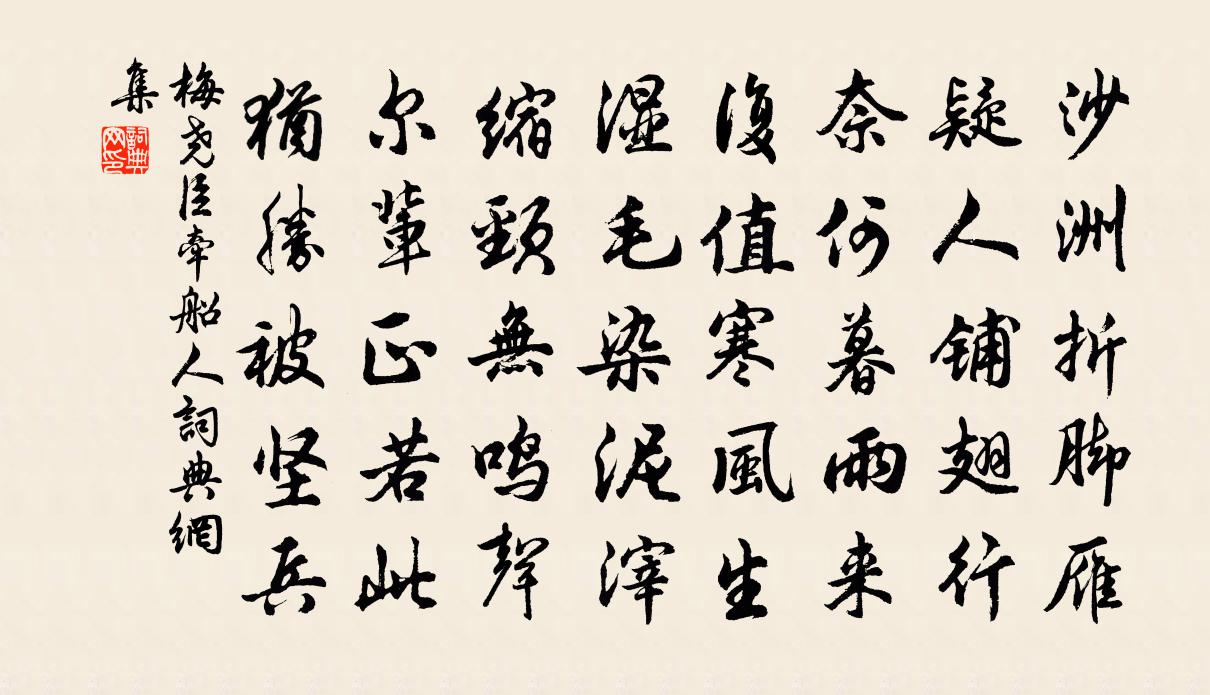 沙洲折脚雁
疑人铺翅行
奈何暮雨来
復值寒風生
湿毛染泥滓
缩頸無鸣聲
尔輩正若此
猶勝被坚兵
梅尧臣牵船人詞典網
集
詞典
网印